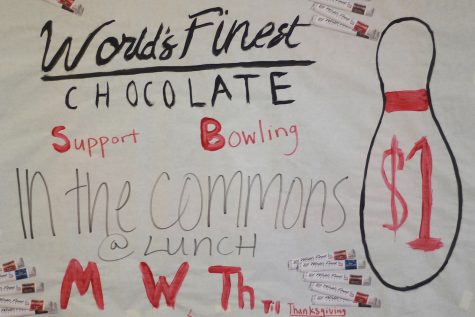 World's Finest
CHOCOLATE
Support Bowling
$1
In the Commons
@ LUNCH
M W Th Till Thanksgiving